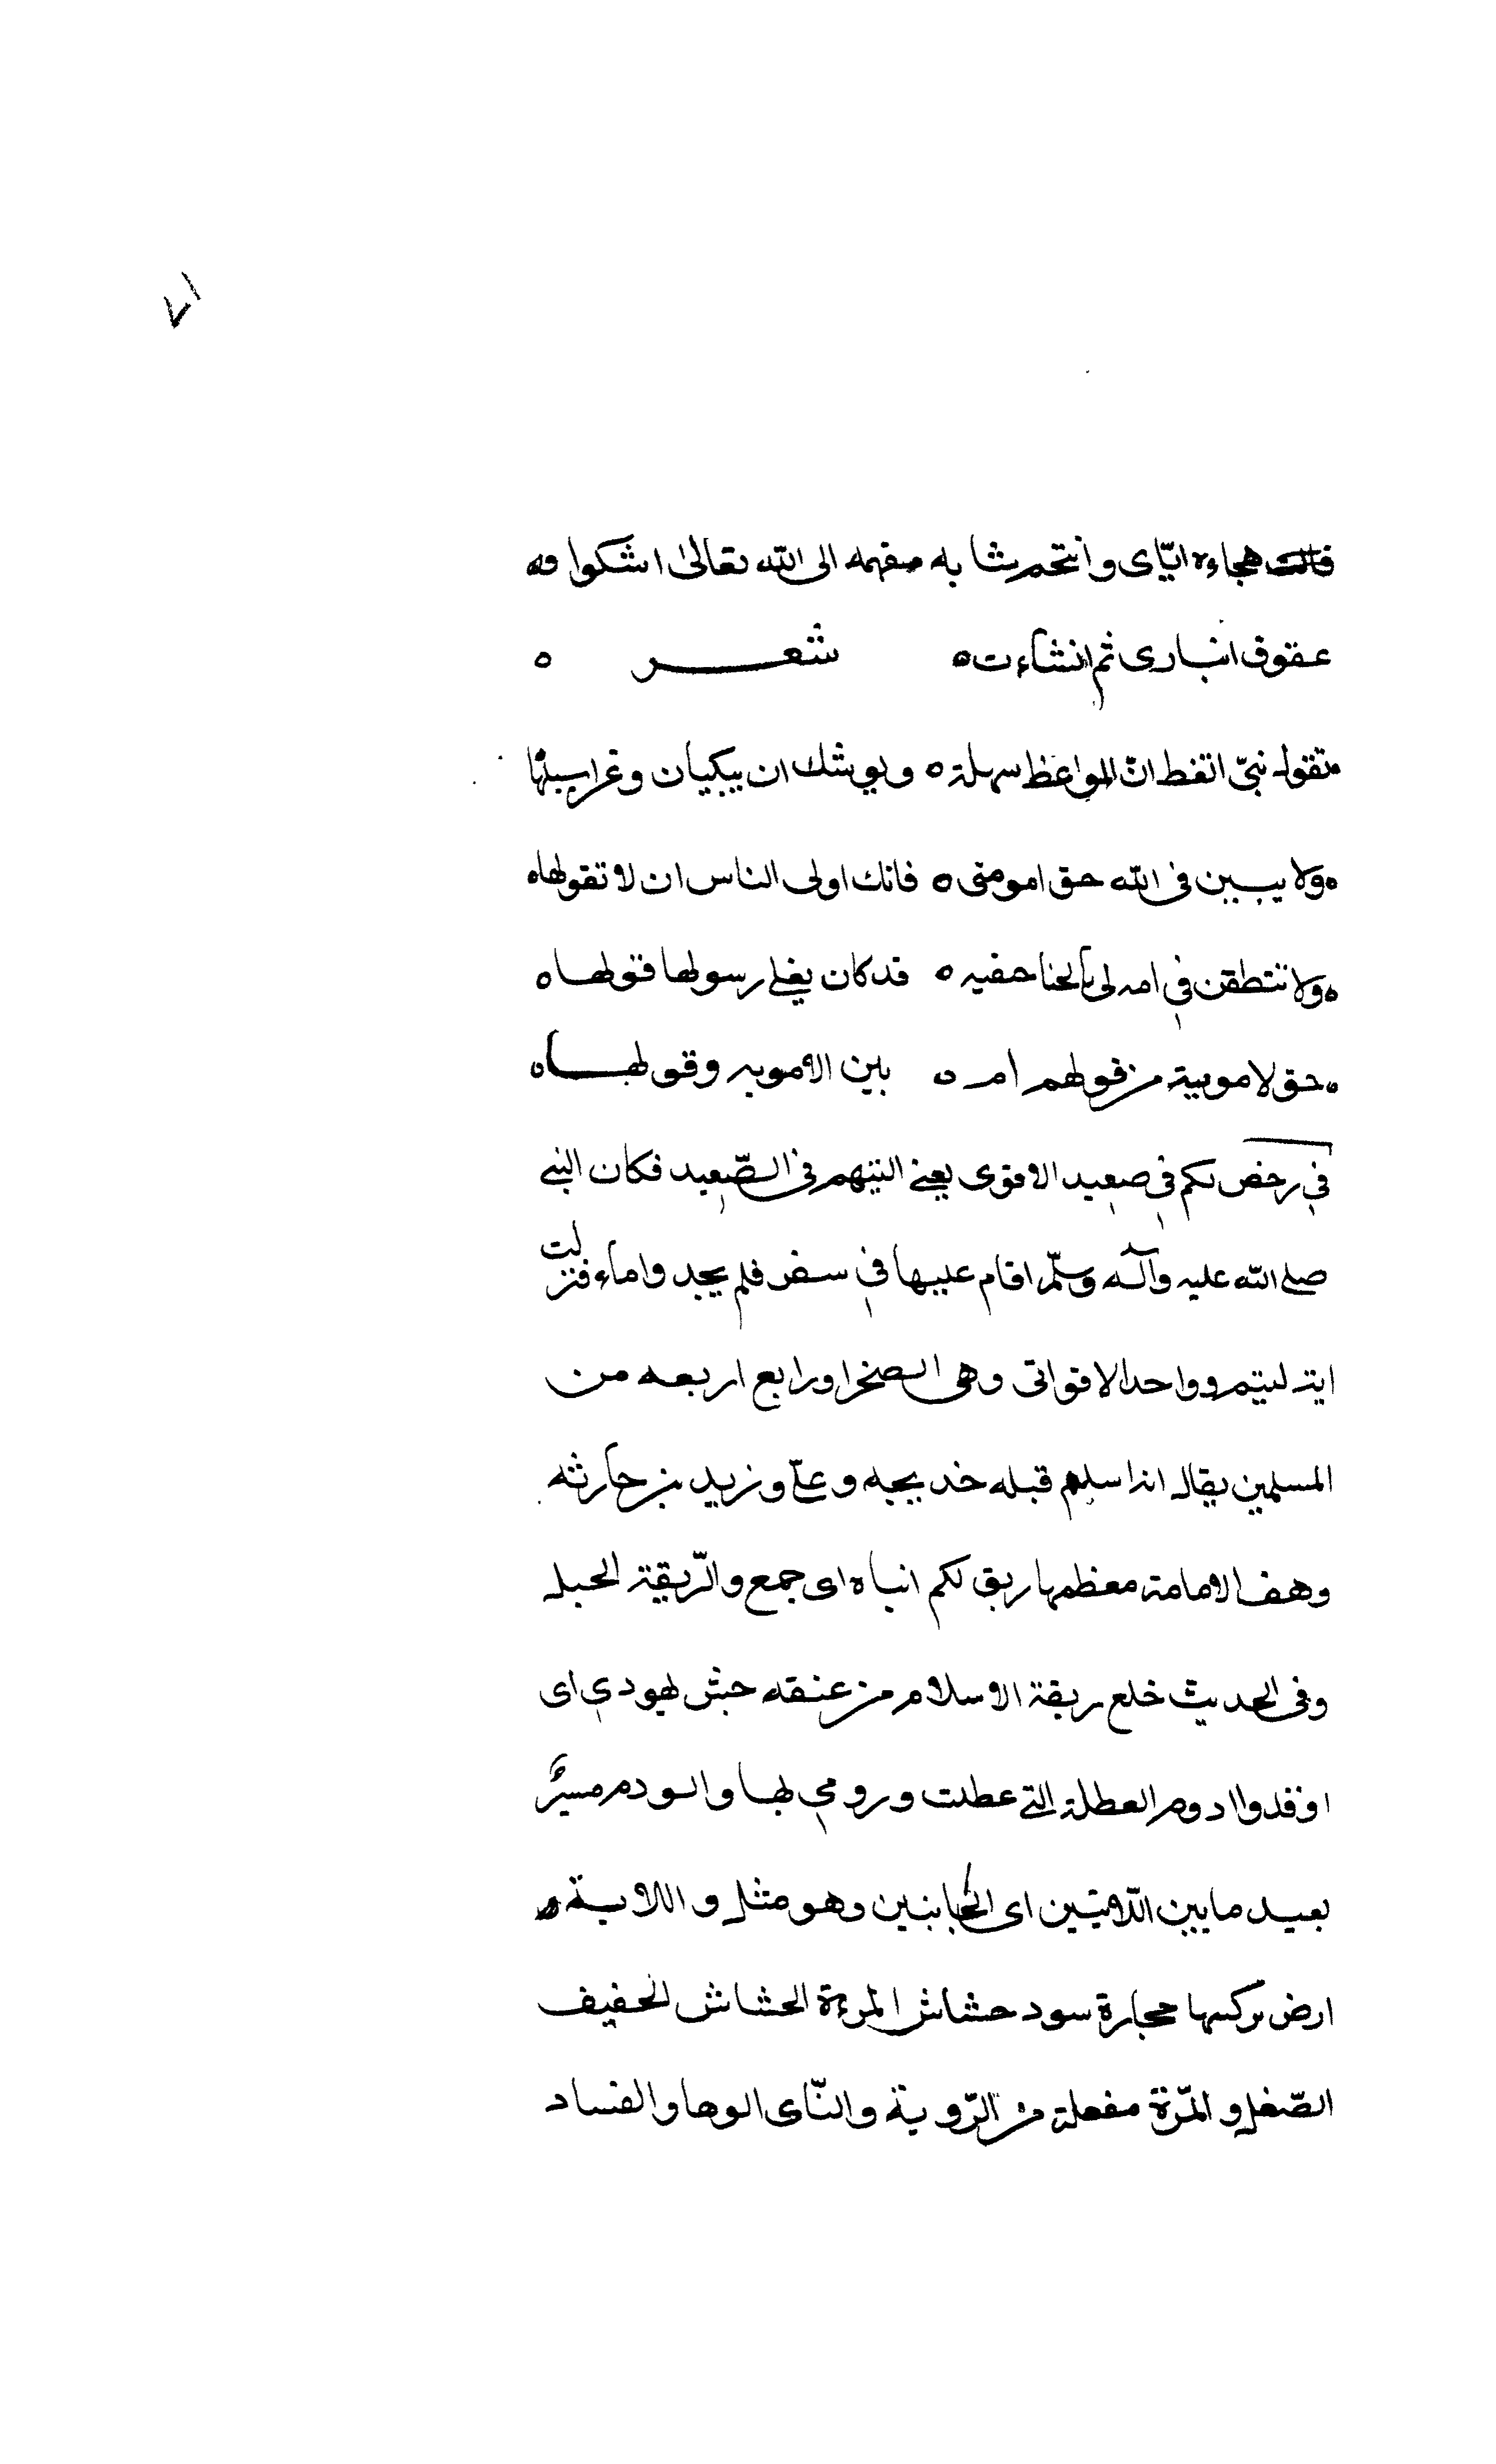 ٧١
هجاءه ايّاى وانتحم شا به صفهمه الى الله تعالىٰ اشكوا
عقوق انبارى ثم انشاءت ه شعر ه
تقول نبىّ اتغط انّ المواعظ سهلة ه ويوشك ان يبكيان وغراسيلها
ه ولا يبين فى الله حق امومتى ه فانك اولى الناس ان لا تقولها ه
ه ولا تنطقن فى امه لى بالخنا حفيه ه قد كان يغلى رسولها فتولها ه
ه حق لاموبية من قولهم ام ه بين الاموبه وقولها ه
فى رخص لكم فى صعيد الاقوى يعنے التيهم فى الصّعيد فكان النبى
صلى الله عليه وآله وسلّم اقام عليها فى سفر فلم يجد واماء فنزلت
اية ليتم وواحد الاقواتى وهى الصخرا ورابع اربعه من
المسلمين يقال انه اسلم قبله خديجه وعلى وزيد بن حارثه
وهف الامامة معظمها ربق لكم انباه اى جمع والرّيقة الحبل
وفى الحديث خلع ربقة الاسلام من عنقه حبش لهودي اى
اوقدوا ادوم العطلة التى عطلت ورومي لها والودم مسيرٌ
بعيد ما بين اللّابتين اى الجانبين وهو مثل واللابة ه
ارض تركبها حجارة سود حشاش المرءة الحشاش الخفيف
الصّغل والمرّة مفعلة من الرّوية والنّاى الوها والفساد